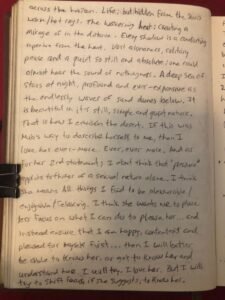 across the horizon. Life, but hidden from the Sun's
warm/hot rays. The wavering heat; creating a
mirage off in the distance. Every shadow is a comforting
reprieve from the heat. Vast aloneness, solitary
peace and a quiet so still and absolute; one could
almost hear the sound of nothingness. A deep sea of
stars at night, profound and ever-expansive as
the endlessly waves of sand dunes below. It
is beautiful in it's still, simple, and quiet nature.
That is how I envision the desert. If this was
way to describe herself to me, then I
love her ever-more. Ever, ever more. And as
for her 2nd statement; I don't think that "pleasure"
applies to things of a sexual nature alone. I think
she means All things I find to be pleasurable/
enjoyable/relaxing. I think she wants me to place
less focus on what I can do to please her... and
instead ensure that I am happy, contented and
pleased for myself first... then I will better
be able to know her, or get to know her and
understand her. I will try. I love her. But I will
try to shift focus, if she suggests, to know her.